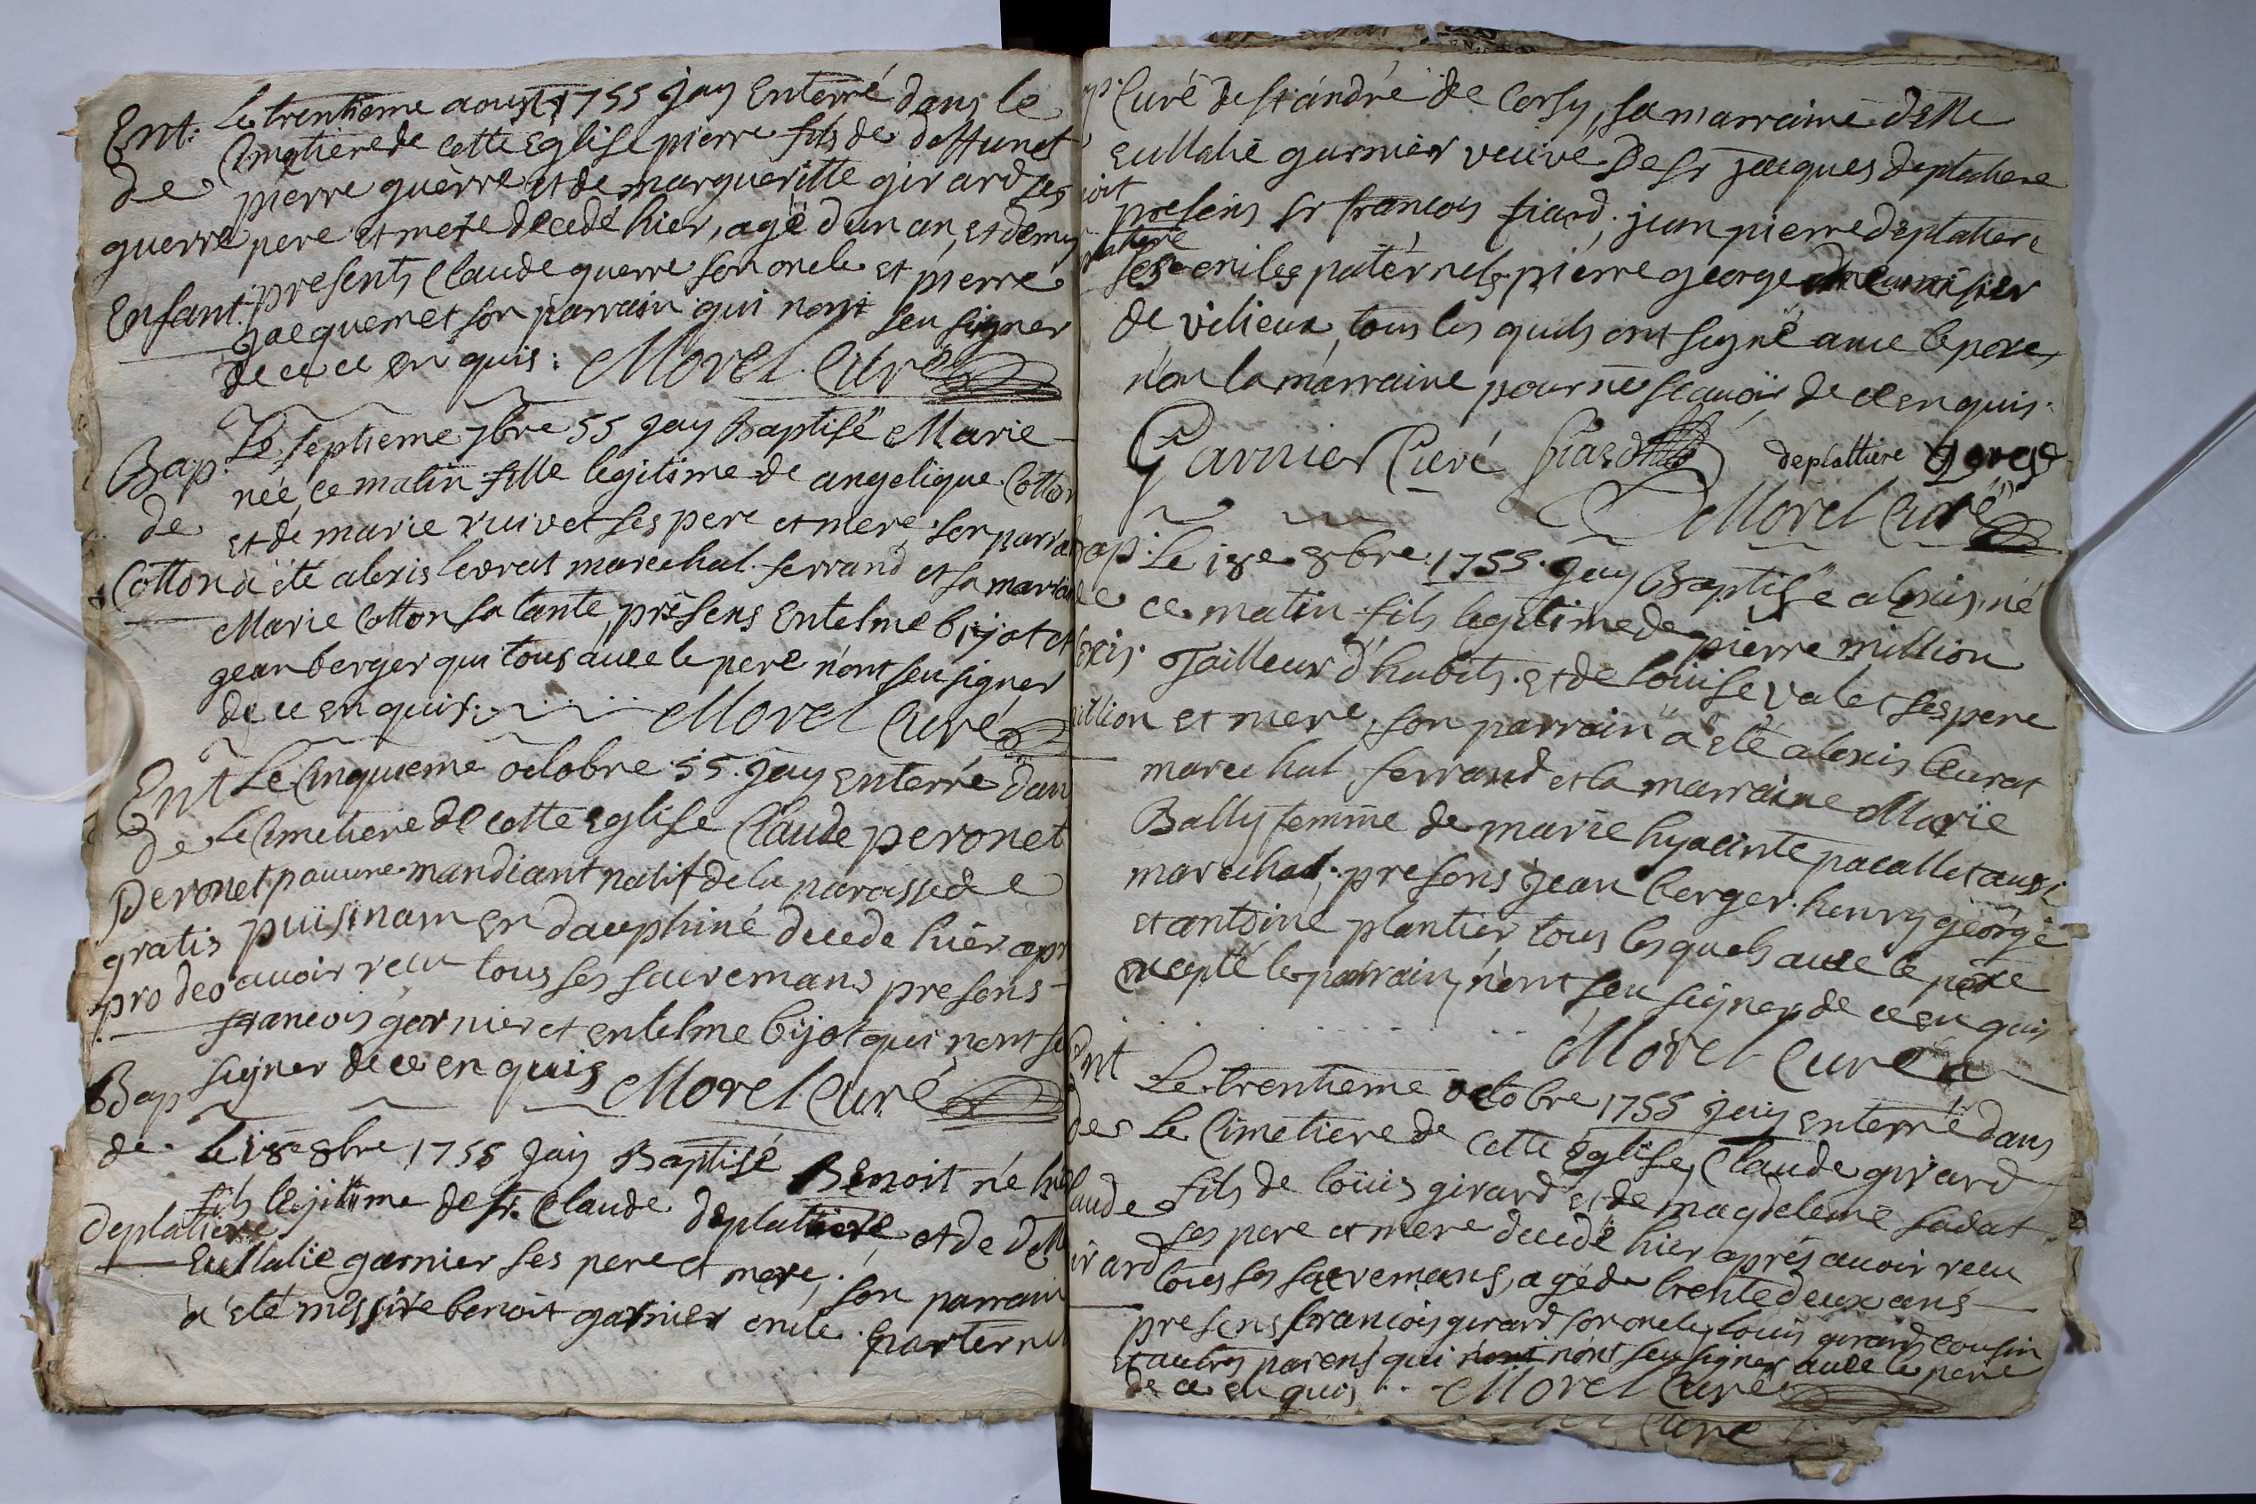 Ent: Le trentieme aoust 1755 jay Enterré dans le
Cimetiere de cette Eglise pierre fils de deffunct
de pierre guerre et de margueritte girard ses
guerre pere et mere decedé hier, agé d'un an, et demy
Enfant: presents Claude guerre son oncle et pierre
jacquemet son parrain qui n'ont seu signer
de ce en quis: Morel Curé
Le septieme 7bre 55 jay Baptisé Marie
Bap: née ce matin fille legitime de angelique Cotton
de et de marie vuivet ses pere et mere, son parrain
Cotton a été alexis levrat marechal ferrand et sa marraine
Marie Cotton sa tante, présens Entelme bijot et
jean berger qui tous avec le pere n'ont seu signer
de ce en quis: Morel Curé
Ent Le Cinquieme octobre 55. jay enterré dans
de Le Cimetiere de cette Eglise Claude peronet
Peronet pauvre mandiant natif de la paroisse de
gratis puisinam en dauphiné decede hier apr
pro deo avoir receu tous ses sacremans presens
françois garnier et entelme bijot qui n'ont seu
signer de ce en quis Morel Curé
Bap
de Le 18e 8bre 1755 jay Baptisé Benoit né hier
fils lejitime de sr. Claude deplatiere et de delle
Deplatiere
Eullalie garnier ses pere et mere, son parrain
a été missire benoit garnier oncle paternel
Curé de st andré de Corsy, sa marraine delle
eullalie garnier veuve De sr jacques deplatiere
presens sr françois fiard, jean pierre deplatiere
ses oncles paternels pierre george
de vilieux, tous les quels ont signé avec le pere,
non la marraine pour ne scavoir de ce en quis.
Garnier Curé fiard deplattiere george
Morel Curé
Bap: Le 18e 8bre 1755. jay Baptisé alexis, né
de ce matin fils legitime de pierre million
alexis. Tailleur d'habits. et de louise valet ses pere
million et mere, son parrain a été alexis levrat
marechal ferrand et la marraine Marie
Bally femme de marie hyacinte pacallet aussi
marechal. presens jean berger. henry george
et antoine plantier tous les quels avec le pere
excepté le parrain, n'ont seu signer de ce en quis
Morel Curé
Ent Le trentieme octobre 1755 jay enterré dans
de Le Cimetiere de cette Eglise, Claude girard
Claude fils de loüis girard et de magdeleine sadat
ses pere et mere decedé hier aprés avoir receu
girard tous ses sacremans, agé de trente deux ans
presens françois girard son oncle, louis girard cousin
et autres parens qui n'ont n'ont seu signer avec le pere
de ce en quis Morel Curé
Curé